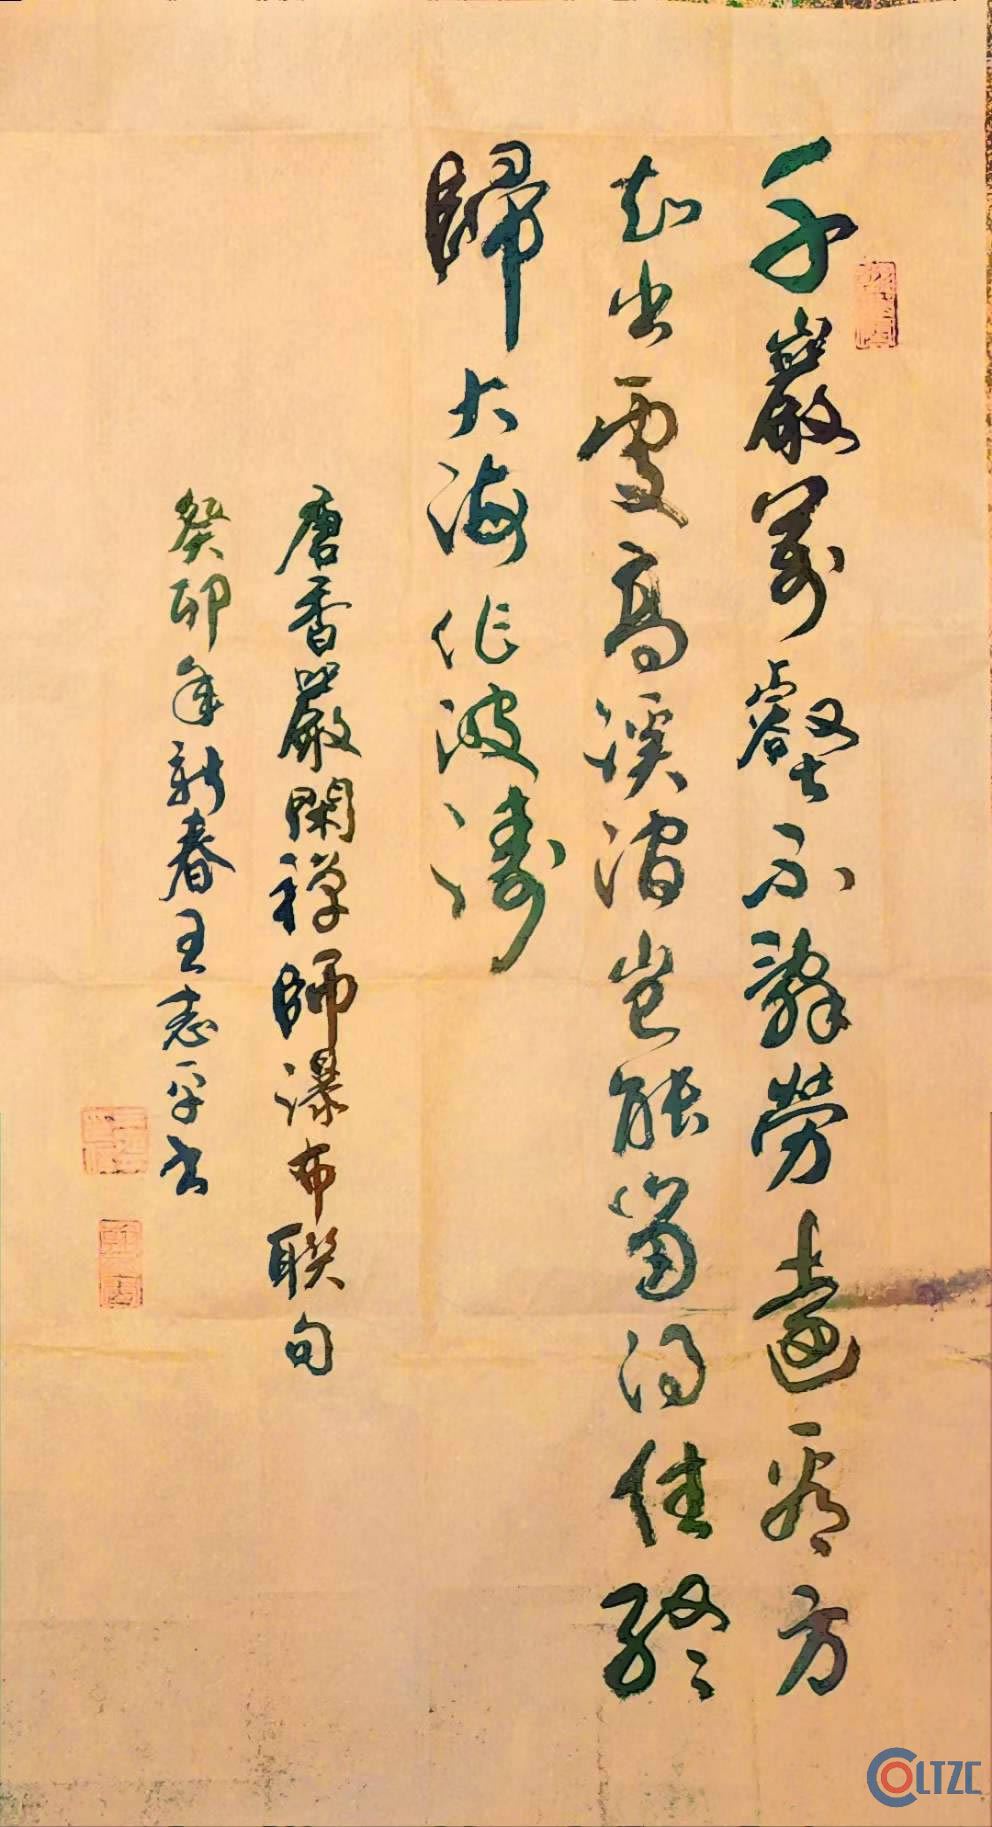 千巖萬壑不辭勞遠看方
知出處高溪澗豈能留得住終
歸大海作波濤
唐香嚴閑禪師瀑布聯句
癸卯年新春王志平书
COLTZE